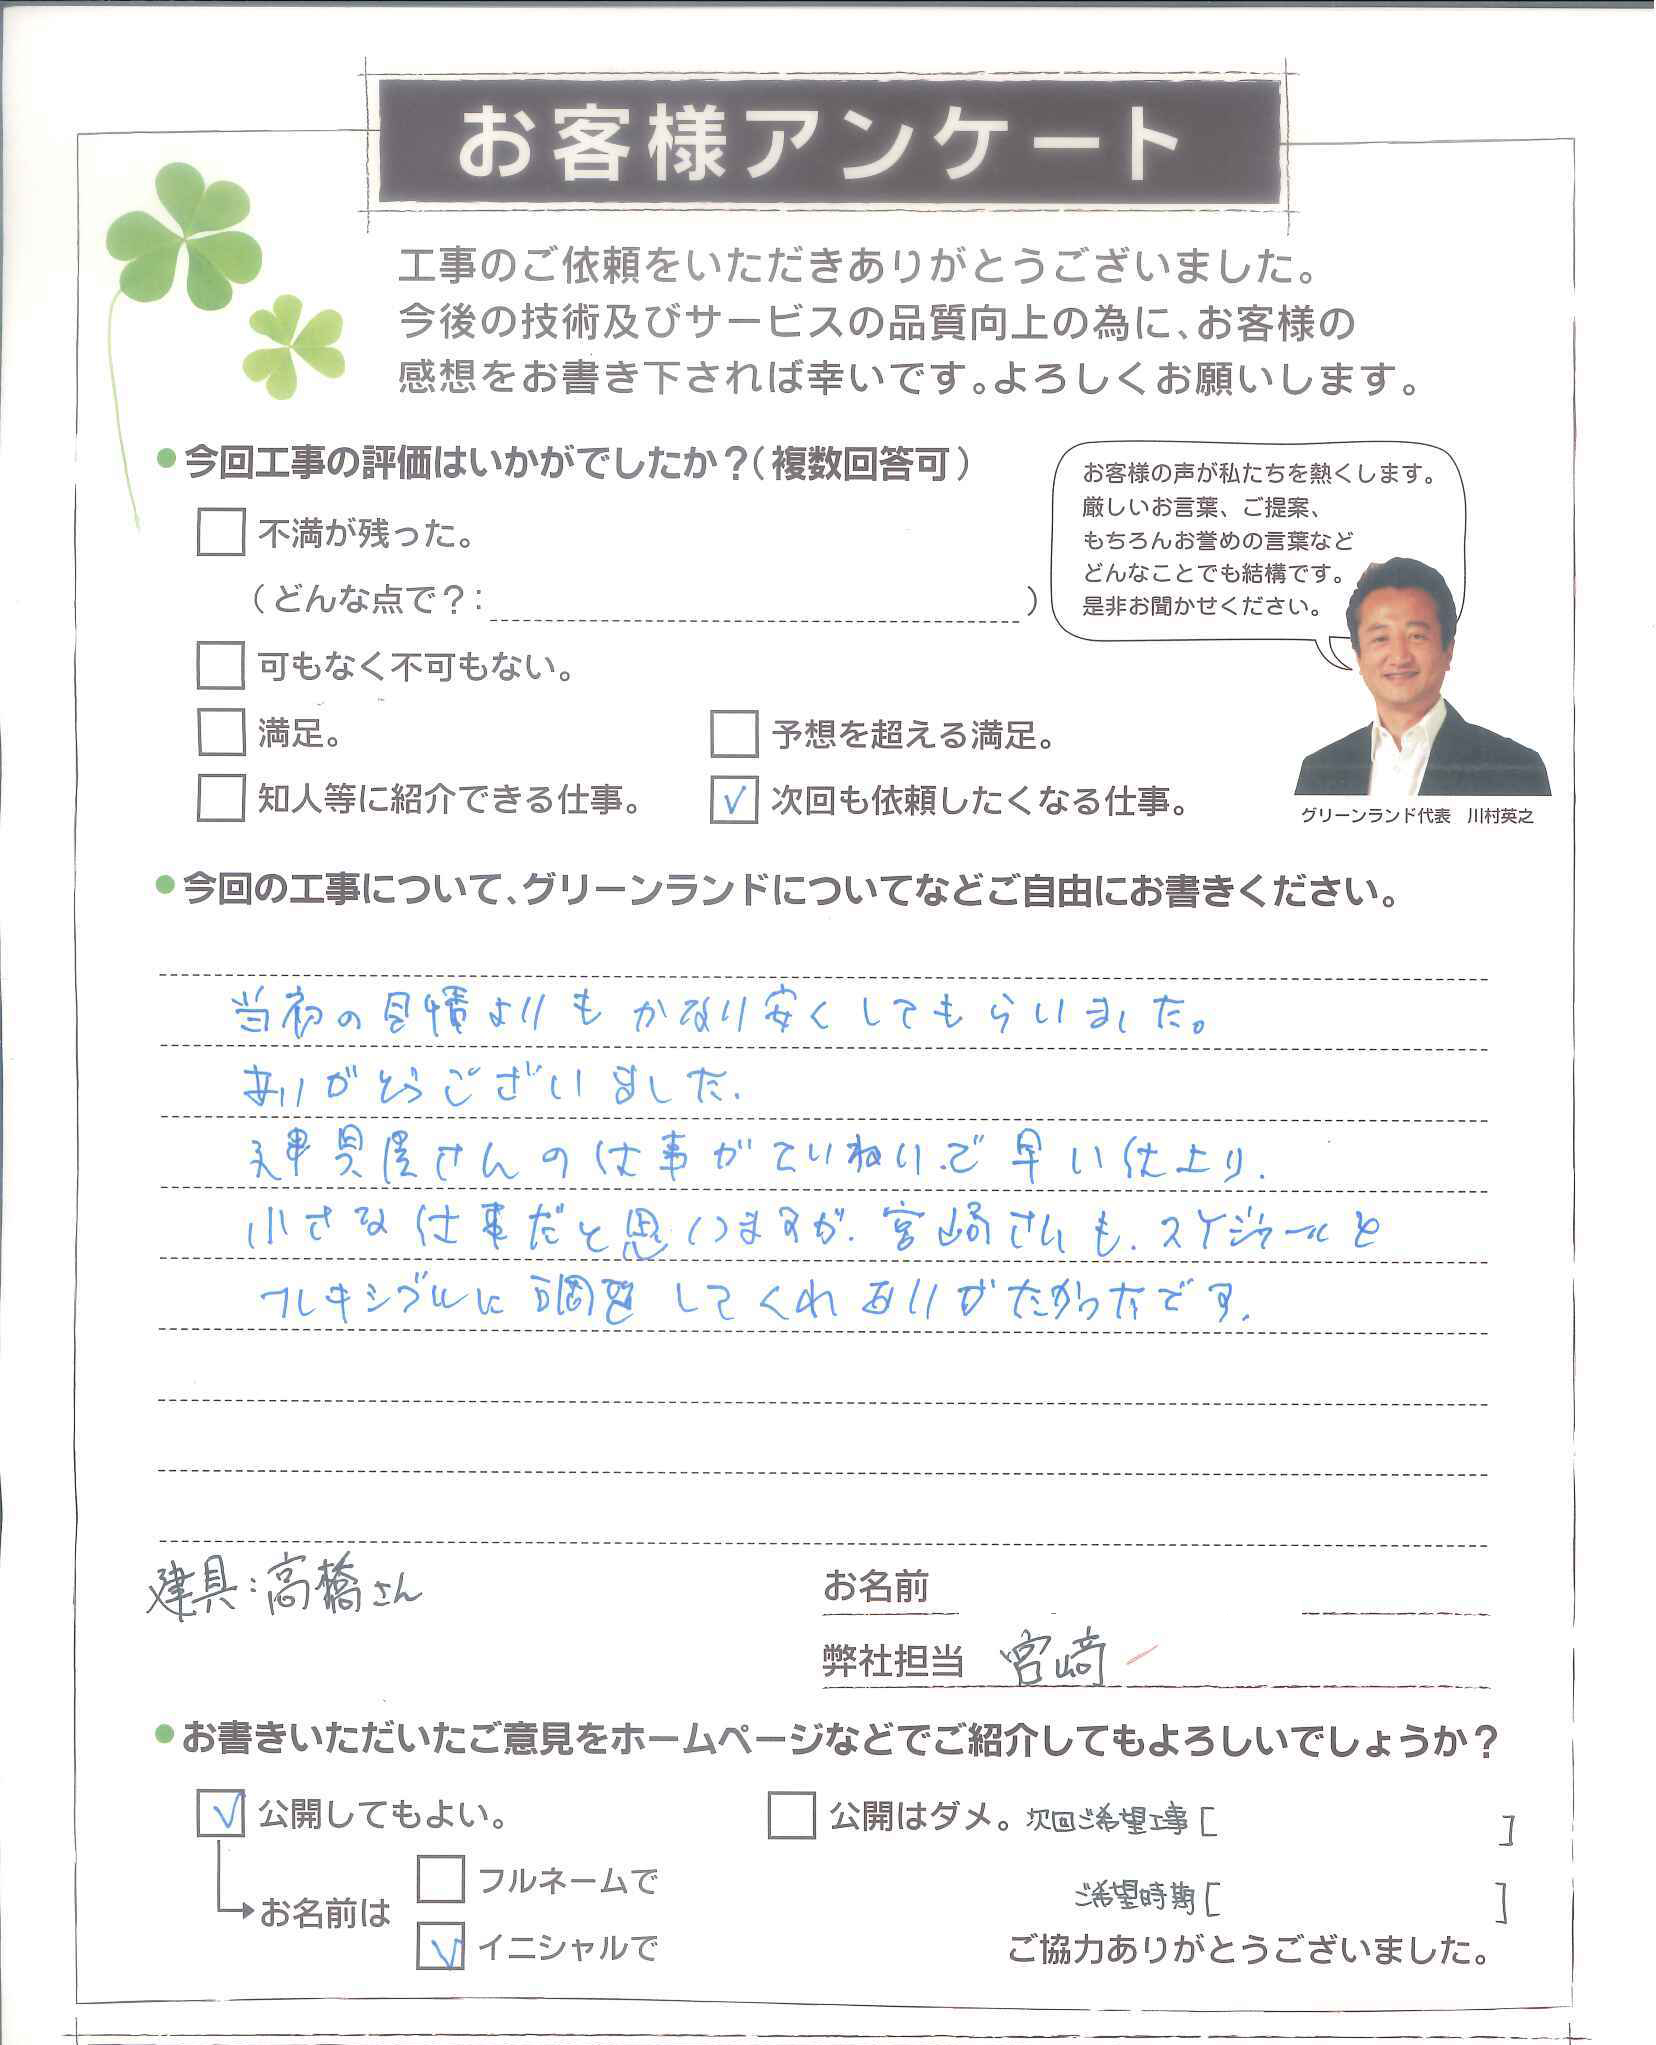 お客様アンケート
工事のご依頼をいただきありがとうございました。
今後の技術及びサービスの品質向上の為に、お客様の
感想をお書き下されば幸いです。よろしくお願いします。
●今回工事の評価はいかがでしたか？（複数回答可）
不満が残った。
（どんな点で？：　　　）
可もなく不可もない。
満足。
予想を超える満足。
知人等に紹介できる仕事。
✓ 次回も依頼したくなる仕事。
お客様の声が私たちを熱くします。
厳しいお言葉、ご提案、
もちろんお誉めの言葉など
どんなことでも結構です。
是非お聞かせください。
グリーンランド代表　川村英之
●今回の工事について、グリーンランドについてなどご自由にお書きください。
当初の見積よりもかなり安くしてもらいました。
ありがとうございました.
建具屋さんの仕事がていねいで早い仕上り.
小さな仕事だと思いますが.宮崎さんも.スケジュールを
フレキシブルに調整してくれありがたかったです.
建具:高橋さん
お名前
弊社担当 宮崎
●お書きいただいたご意見をホームページなどでご紹介してもよろしいでしょうか？
✓ 公開してもよい。
公開はダメ。
次回ご希望工事[　　]
お名前は
フルネームで
✓ イニシャルで
ご希望時期[　　]
ご協力ありがとうございました。